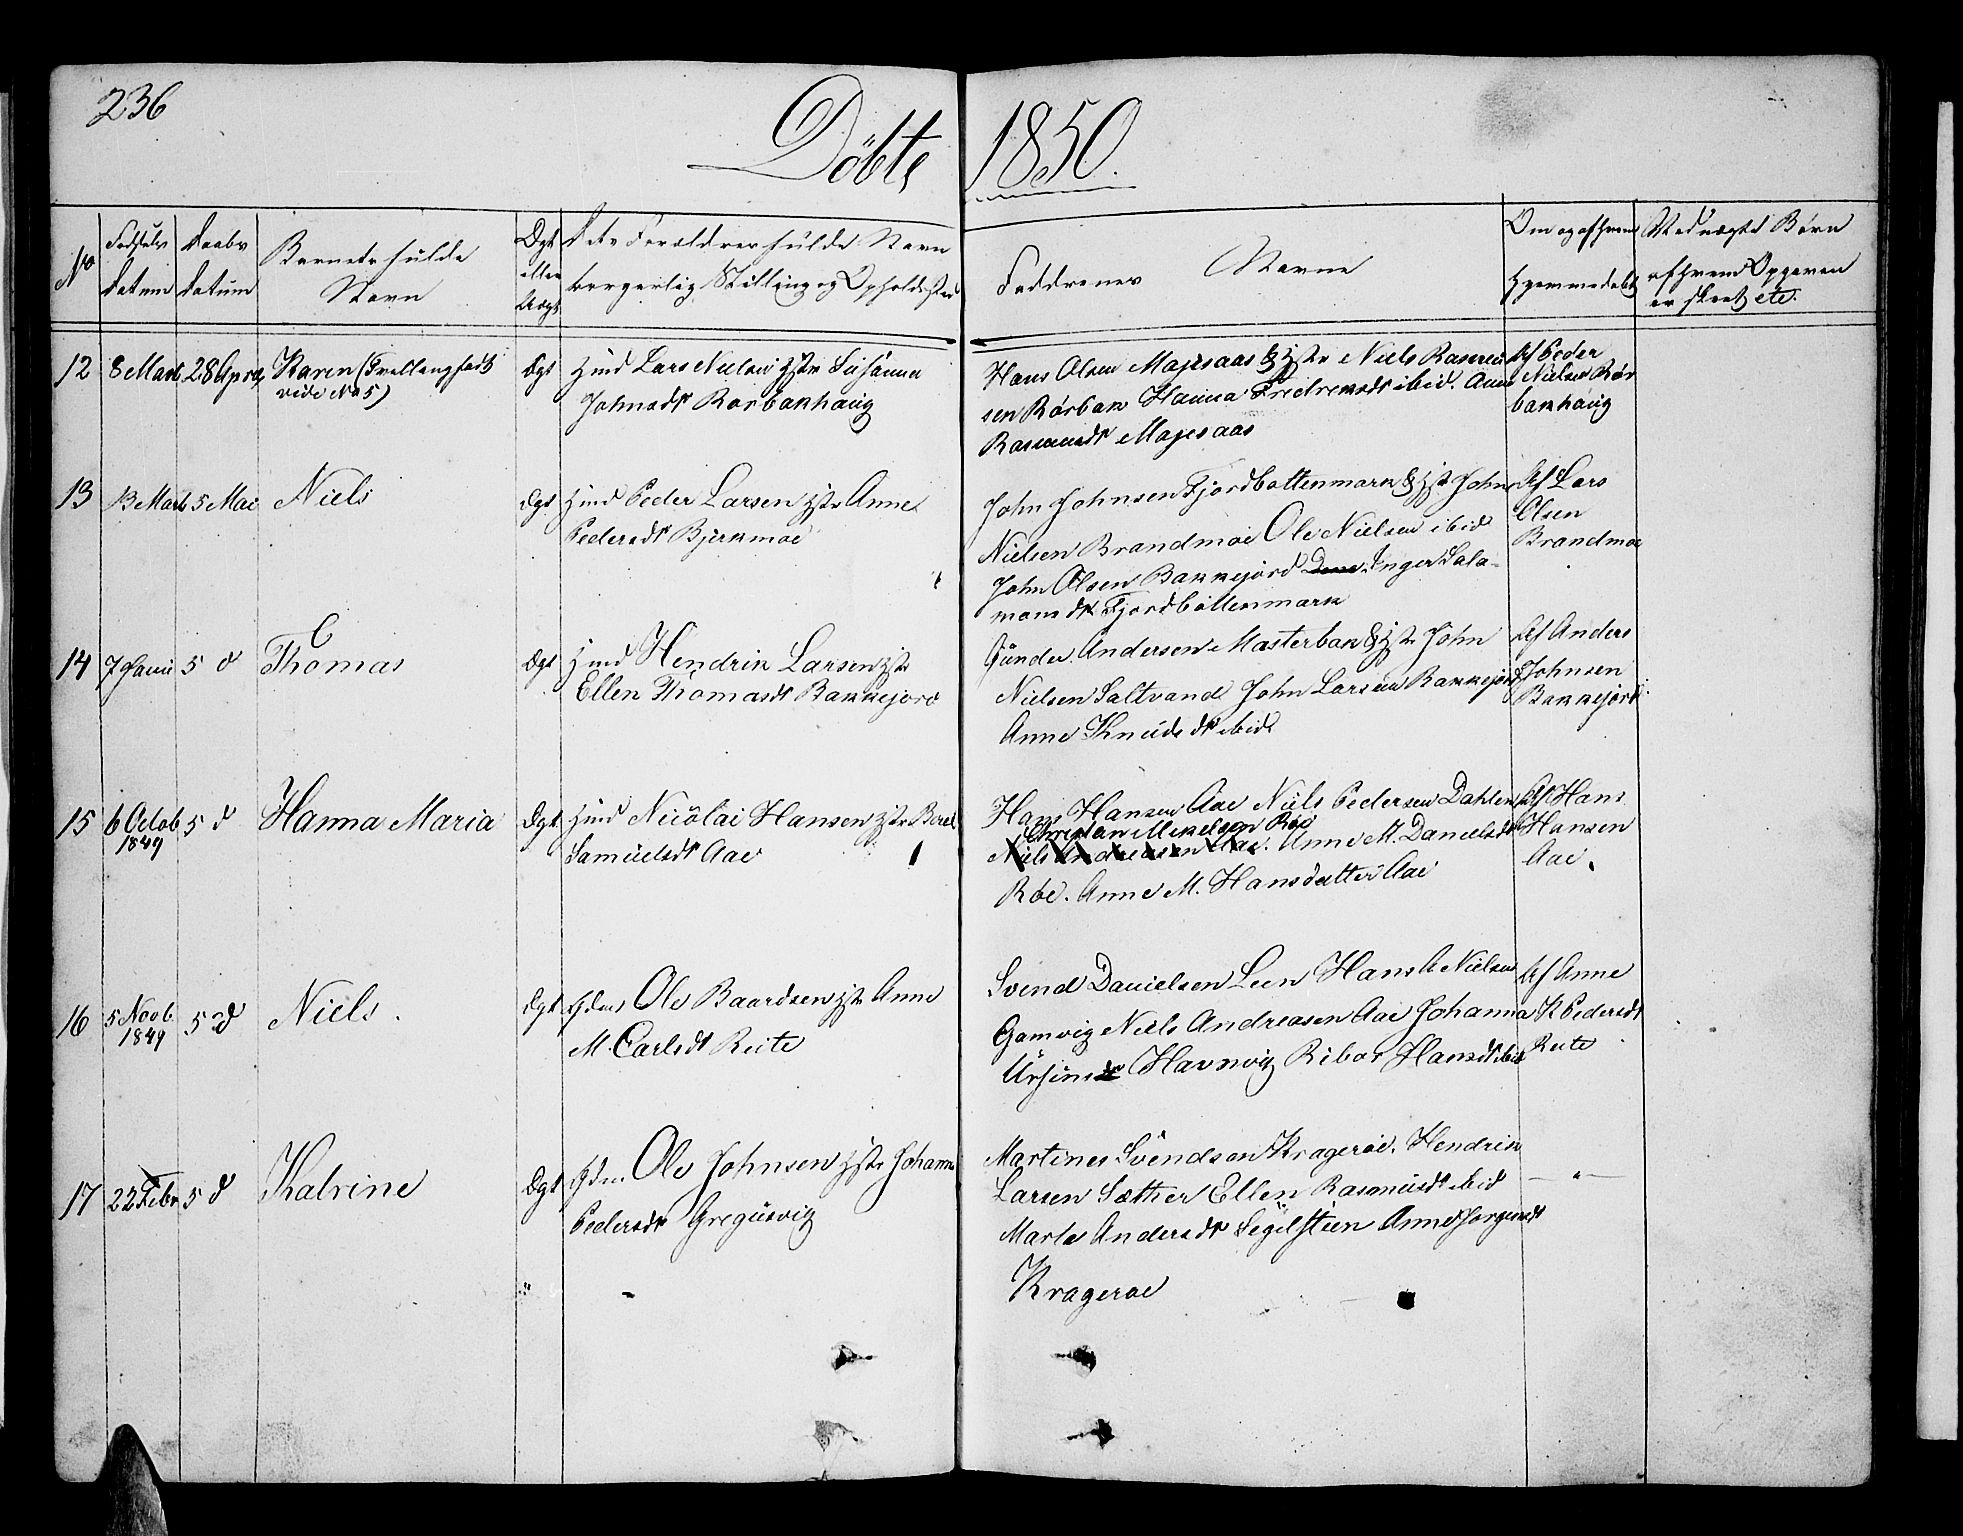 236
Döbte 1850.
No
Fødsels
Datum
Daabs
Datum
Barnets fulde
Navn
Dgt
eller
Uægt
Dets Forældres fulde Navn
borgerlig Stilling og Opholdsted
Faddernes Navne
Om og af hvem
hjemmedøbt
Ved uægte Børn
af hvem Opgaven
er skeet etc.
12 8 Marts 28 April Karen (Trellingfødt
vide No 5)
Ægt Hmd Lars Nielsen Hstr Susanna
Johnsdt Rørbakhaug
Hans Olsen Majesaas & Hstr Niels Rasmu
sen Rørbak Hanna Fredreksdt ibid. Anne
Rasmusdt Majesaas
Af Peder
Nielsen Rør
bakhaug
13 13 Marts 5 Mai Niels
Ægt Hmd Peder Larsen Hstr Anne
Pedersdt Bjerkmoe
John Johnsen Fjordbottenmark & Hstr John
Nielsen Brandmoe Ole Nielsen ibid
John Olsen Bakkejord Inger Sala-
monsdt Fjordbottenmark
Af Lars
Olsen
Brandmoe
14 7 Janu 5 d Thomas
Ægt Hmd Hendrik Larsen Hstr
Ellen Thomasdt Bakkejord
Gunder Andersen Masterbak & Hstr John
Nielsen Saltvand John Larsen Bakkejord
Anne Knudsdt ibid
Af Anders
Johnsen
Bakkejord
15 6 Octob 5 d Hanna Maria
1849
Ægt Hmd Nicolai Hansen Hstr Berel
Samuelsdt Aae
Hans Hansen Aae Niels Pedersen Dahlen
Christian Mikelsen Röe
Niels Andreasen Aae. Anne M. Danielsdt
Röe. Anne M. Hansdatter Aae
Af Hans
Hansen
Aae
16 5 Novb 5 d Niels.
1849
Ægt Gdm Ole Baardsen Hstr Anne
M. Carlsdt Reite
Svend Danielsen Leen Hans A Nielsen
Gamvig Niels Andreasen Aae Johanna
Ursin Havnvig Ribor Hansdt ibid
Af Anne
K Pedersdt
Reite
17 22 Febr 5 d Katrine
Ægt Gdm. Ole Johnsen Hstr Johanna
Pedersdt Gregusvig
Martines Svendsen Krageroe. Hendrik
Larsen Sæther Ellen Rasmusdt ibid
Marta Andersdt Segelstien Anne Jørgensdt
Krageroe
— " —